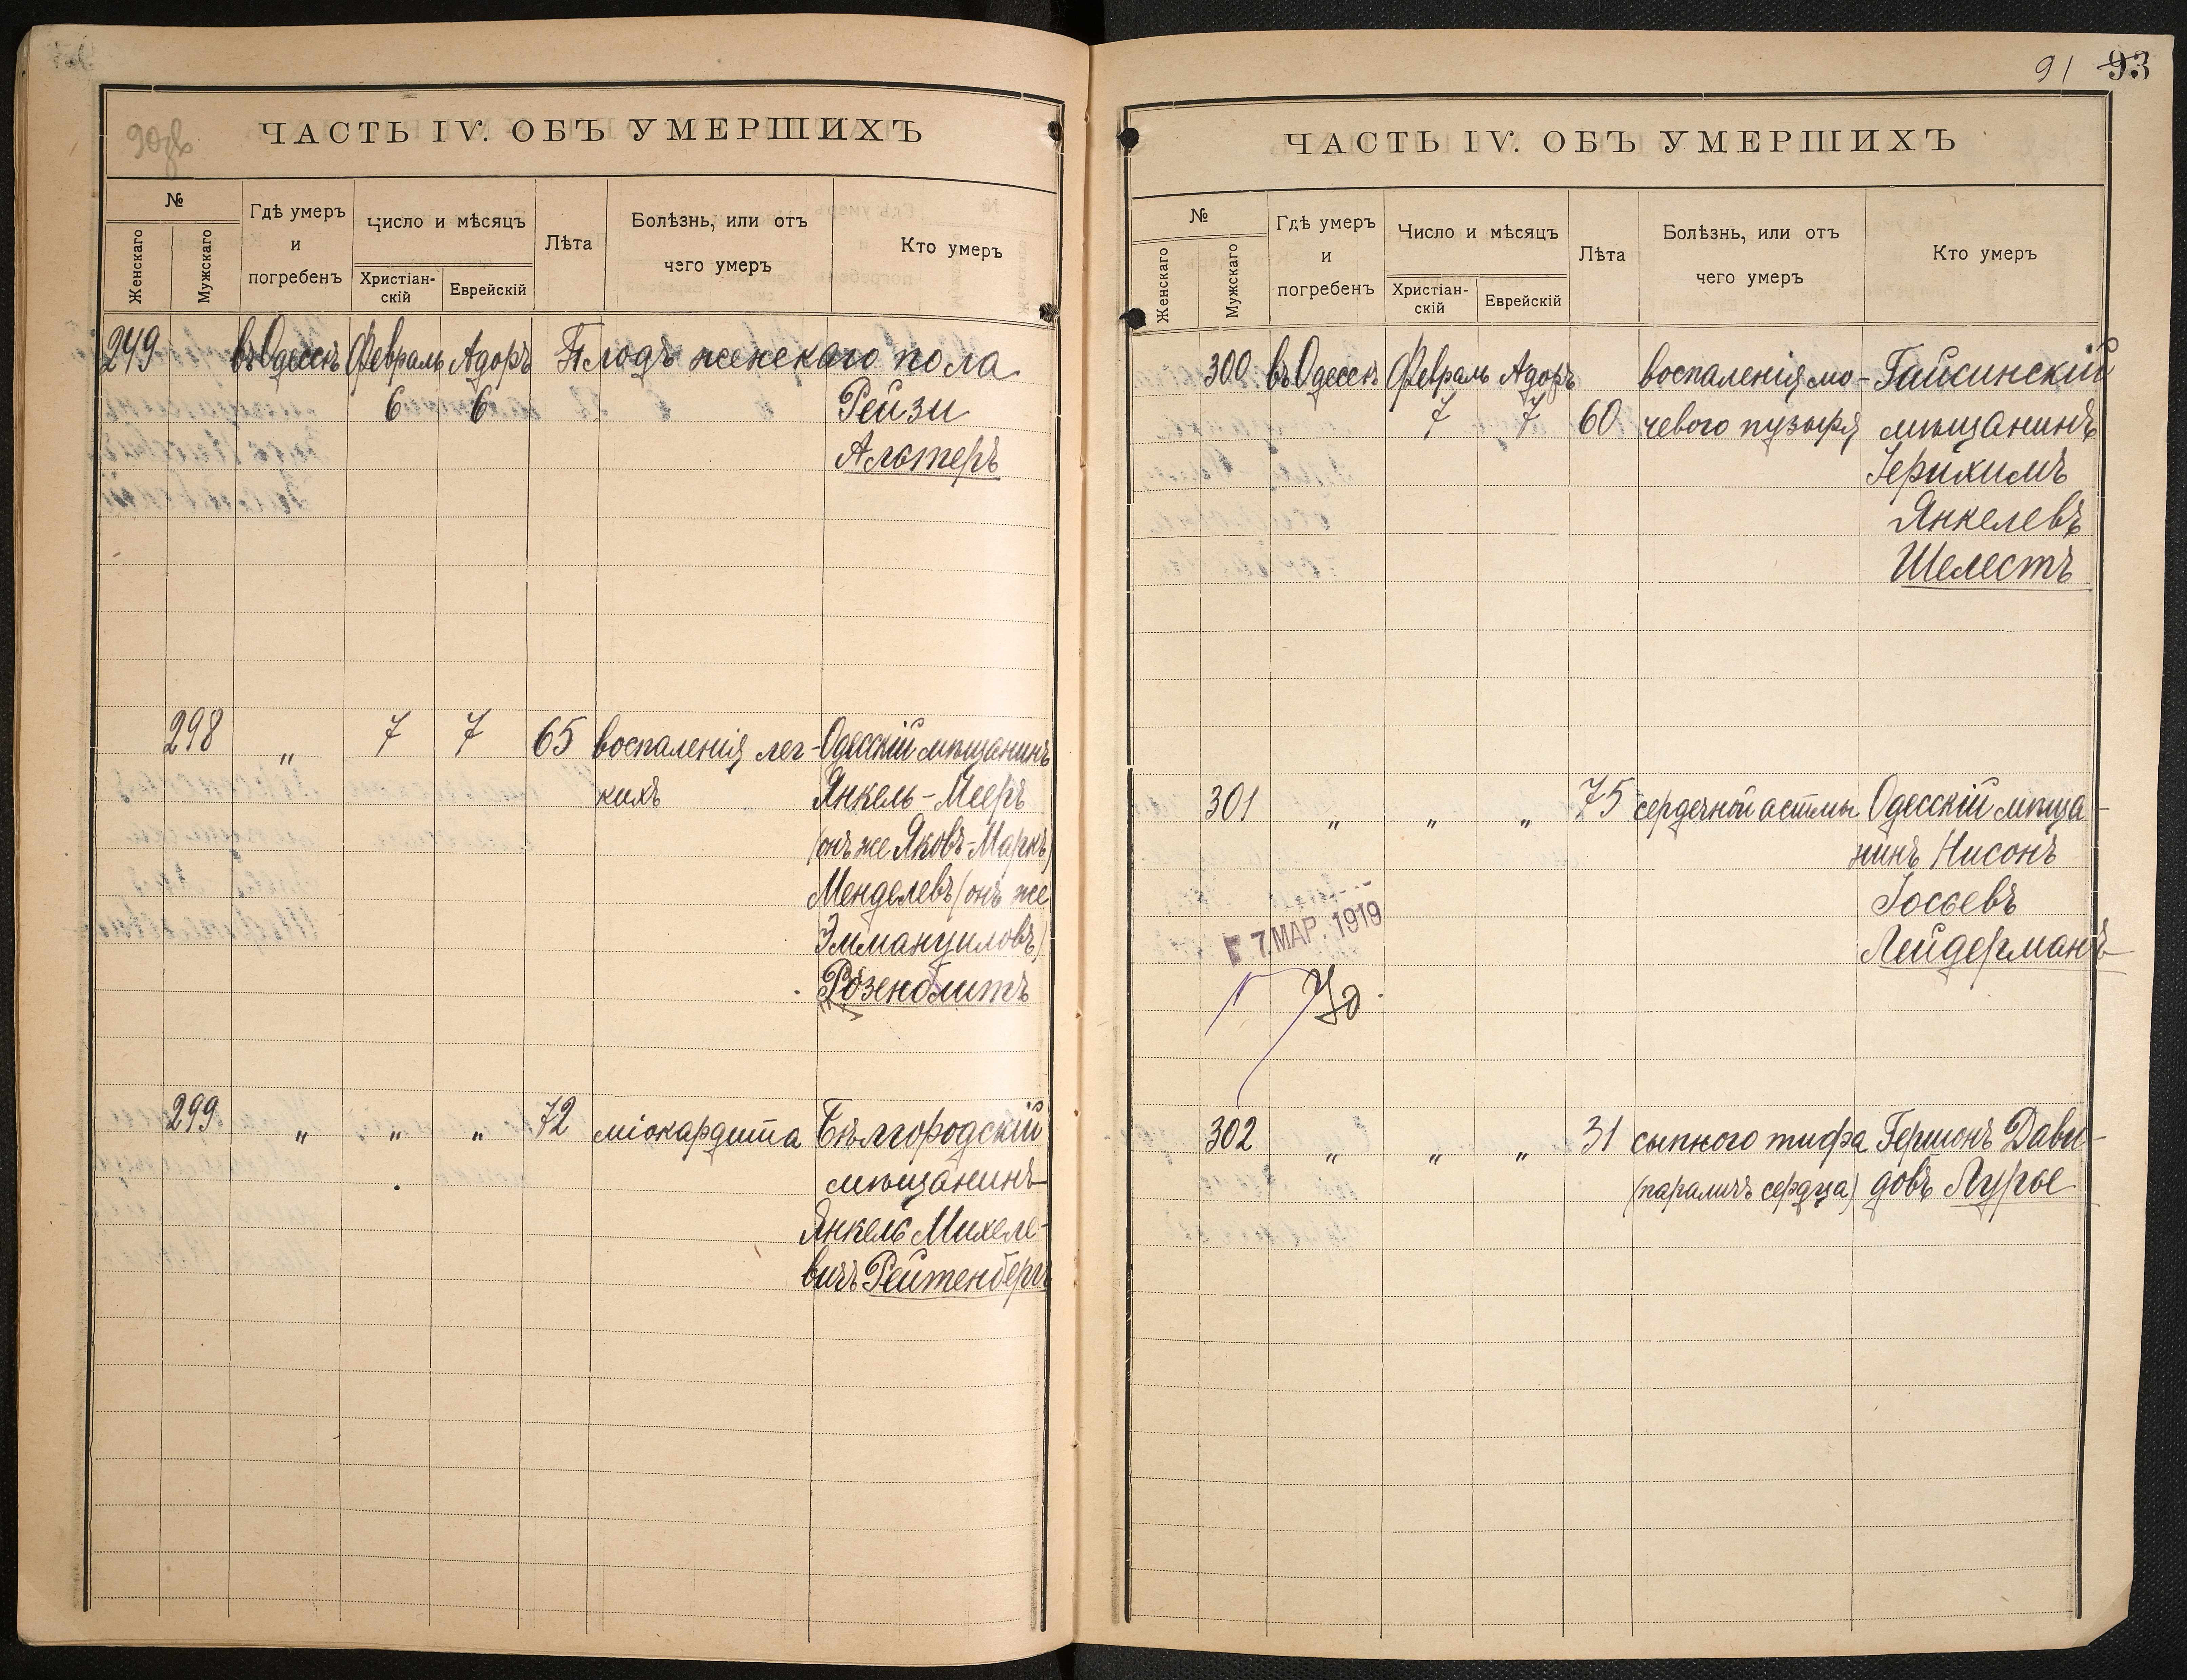 90об
ЧАСТЬ IV. ОБЪ УМЕРШИХЪ
№
Женскаго
Мужскаго
Гдѣ умеръ
и
погребенъ
Число и мѣсяцъ
Христіан-
скій
Еврейскій
Лѣта
Болѣзнь, или отъ
чего умеръ
Кто умеръ
249 въ Одессѣ Февраль Адоръ Плодъ женскаго пола
6 6 Рейзи
Альтеръ
298 " 7 7 65 воспаленія лег- Одесскій мѣщанинъ
кихъ Янкель-Мееръ
(онъ же Яковъ-Маркъ)
Менделевъ (онъ же
Эммануиловъ)
Розенблитъ
299 " " " 72 міокардита Бѣлгородскій
мѣщанинъ
Янкель Михеле-
вичъ Рейтенбергъ
91 93
ЧАСТЬ IV. ОБЪ УМЕРШИХЪ
№
Женскаго
Мужскаго
Гдѣ умеръ
и
погребенъ
Число и мѣсяцъ
Христіан-
скій
Еврейскій
Лѣта
Болѣзнь, или отъ
чего умеръ
Кто умеръ
300 въ Одессѣ Февраль Адоръ воспаленія мо- Гайсинскій
7 7 60 чевого пузыря мѣщанинъ
Іерихимъ
Янкелевъ
Шелестъ
301 " " " 75 сердечной астмы Одесскій мѣща-
нинъ Нисонъ
Іосьевъ
Лейдерманъ
7 МАР. 1919
302 " " " 31 сыпного тифа Гершонъ Дави-
(параличъ сердца) довъ Лурье